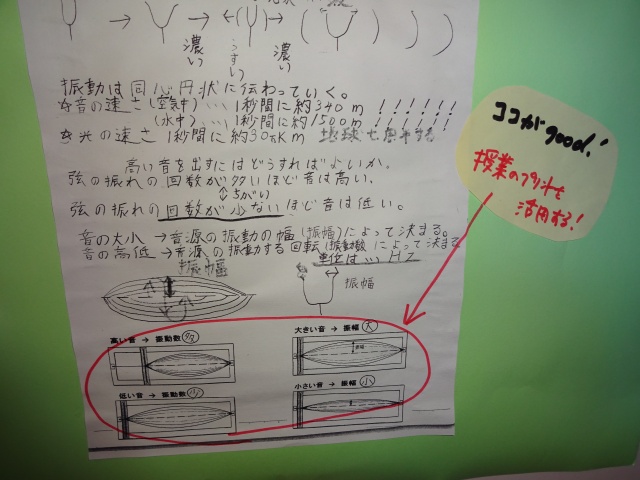 濃い うすい 濃い
振動は同心円状に伝わっていく。
☆音の速さ(空気中)… 1秒間に約340m !!!!!!
(水中)… 1秒間に約1500m !!!!!!
☆光の速さ 1秒間に約30万Km 地球七周半する
高い音を出すにはどうすればよいか。
弦の振れの回数が多いほど音は高い。
ちがい
弦の振れの回数が少ないほど音は低い。
音の大小→音源の振動の幅(振幅)によって決まる。
音の高低→音源の振動する回転(振動数)によって決まる
単位は…HZ
振幅
振幅
高い音 → 振動数 多
大きい音 → 振幅 大
低い音 → 振動数 少
小さい音 → 振幅 小
ココがgood!
授業のプリントを
活用する!